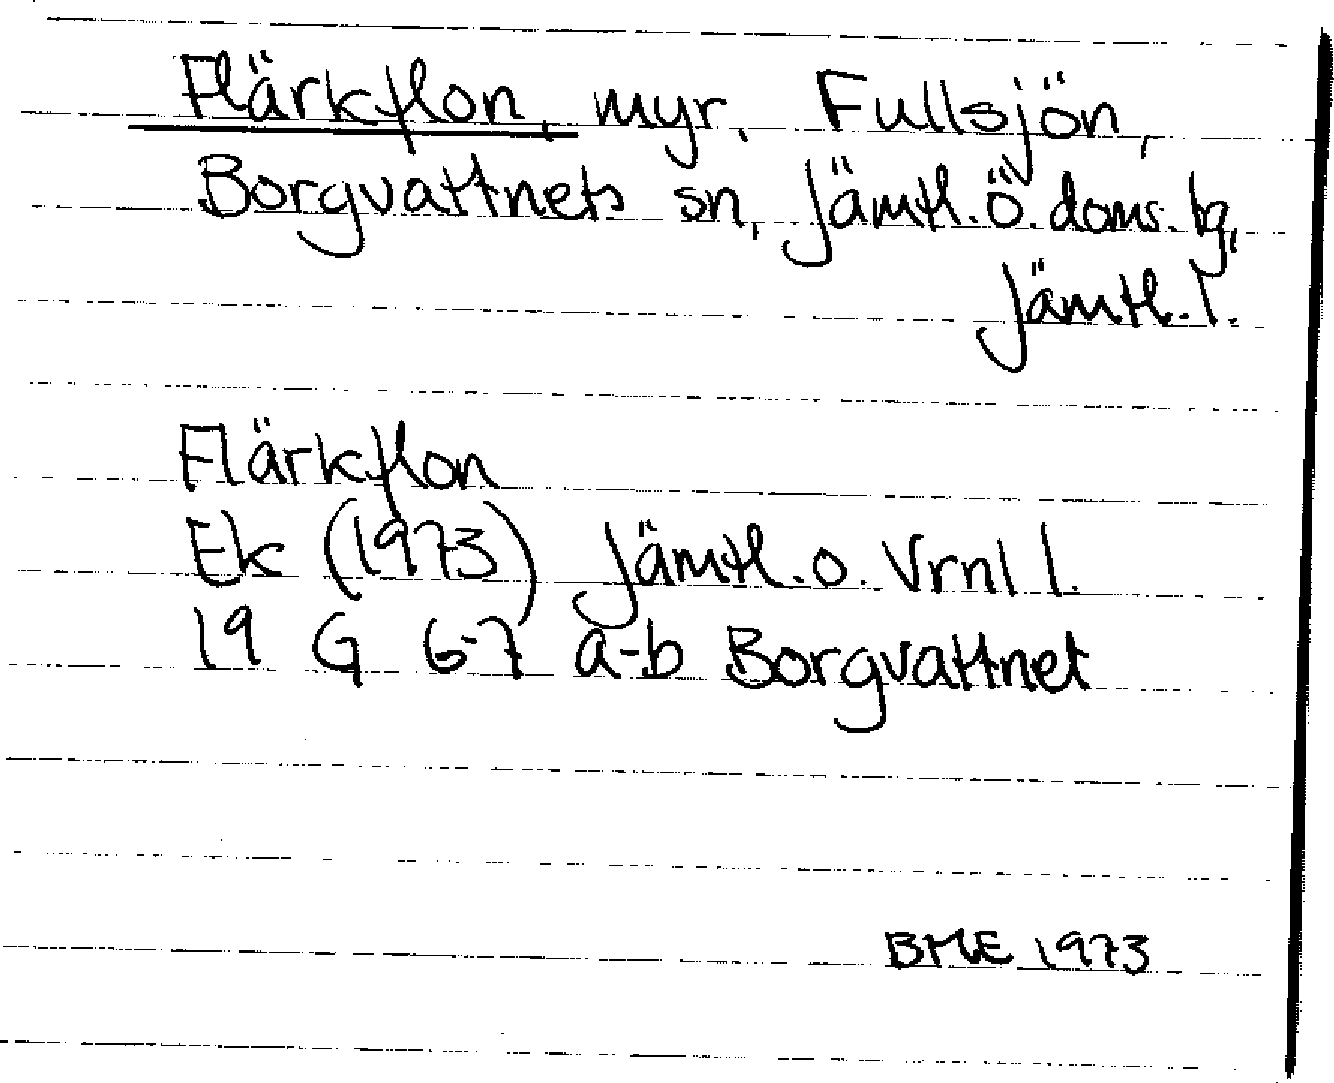 Flärkflon, myr, Fullsjön,
Borgvattnets sn, Jämtl. Ö. doms. tg,
Jämtl. l.
Flärkflon
Ek (1973) Jämtl. o. Vrnl l.
19 G 6-7 a-b Borgvattnet
BME 1973